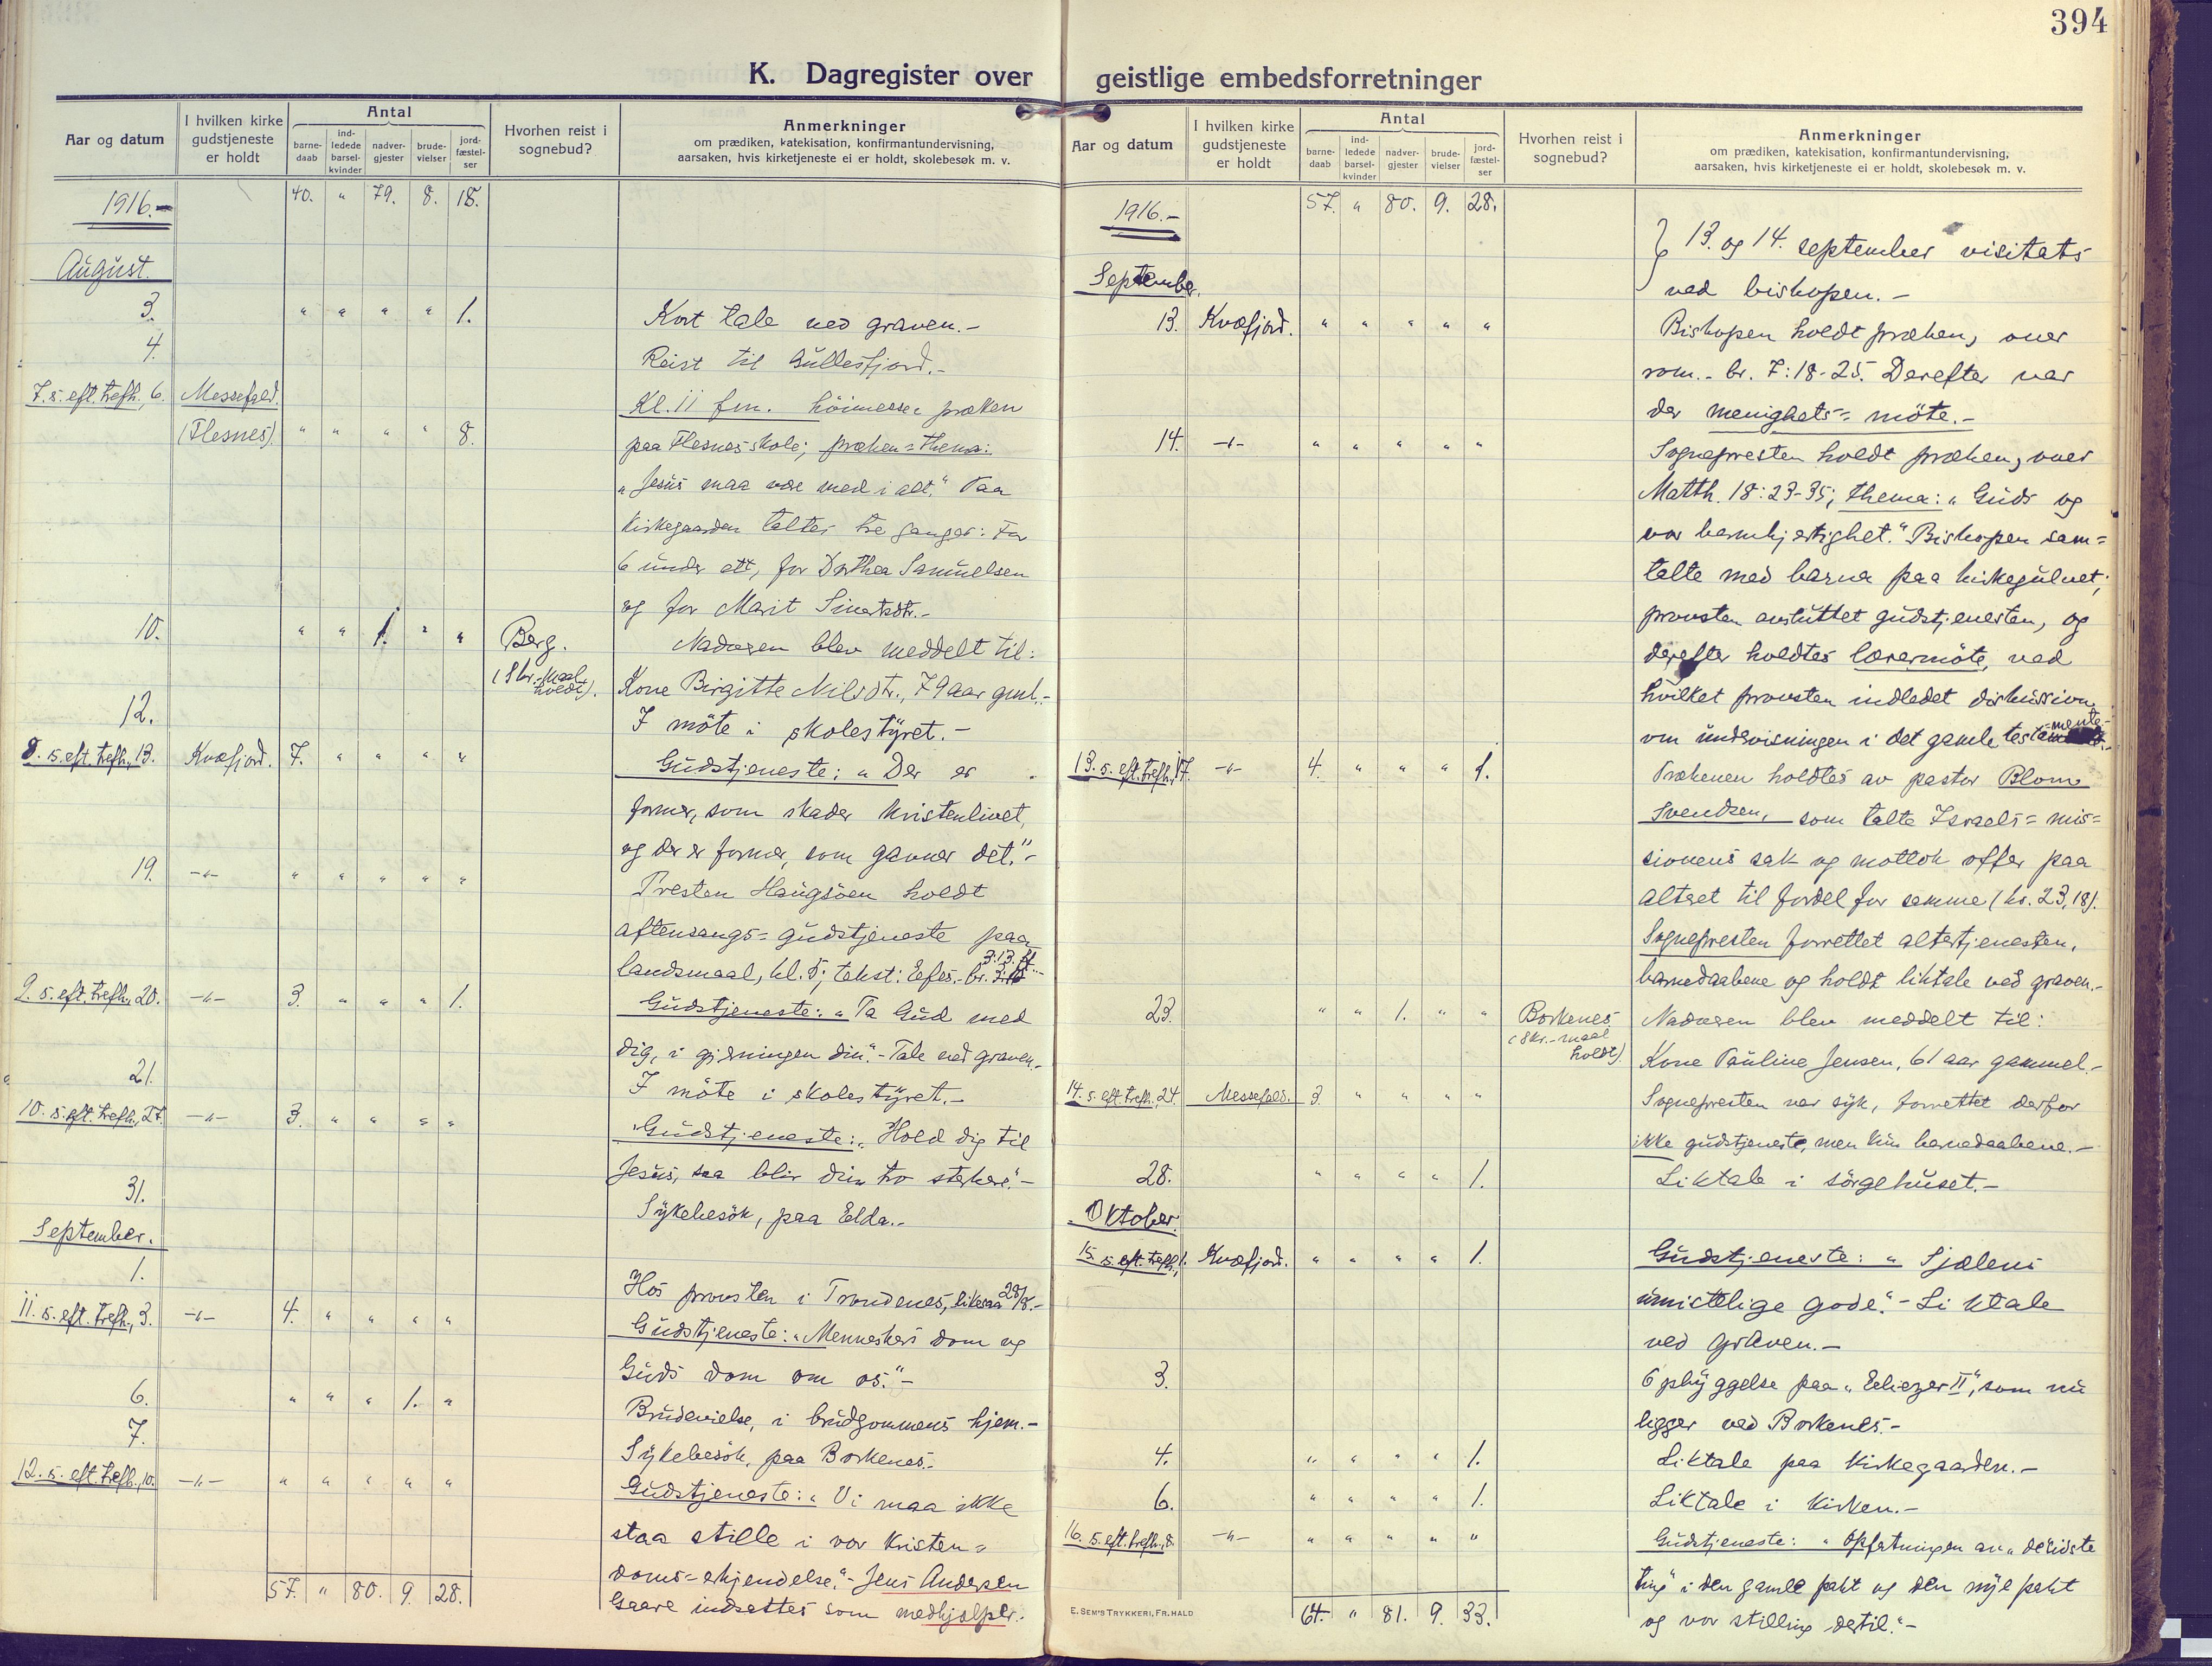 394
K. Dagregister over geistlige embedsforretninger
Aar og datum
I hvilken kirke gudstjeneste er holdt
Antal
barne-daab
ind-ledede barsel-kvinder
nadver-gjester
brude-vielser
jord-fæstel-ser
Hvorhen reist i sognebud?
Anmerkninger
om prædiken, katekisation, konfirmantundervisning,
aarsaken, hvis kirketjeneste ei er holdt, skolebesøk m. v.
1916.- 40. " 79. 8. 18.
August.
3. " " " " 1. Kort tale ved graven.-
4. Reist til Gullesfjord.-
7. s. eft. trefh., 6. Messefald. Kl. 11 fm. höimesse: præken
(Flesnes) " " " " 8. paa Flesnes skole; præken=thema:
"Jesus maa være med i alt." Paa
kirkegaarden taltes tre ganger: For
6 under ett, for Dorthea Samuelsen
og for Marit Sivertsdtr.-
10. " " 1. " " Berg. Nadveren blev meddelt til:
(Skr.-maal holdt). Kone Birgitte Nilsdtr., 79 aar gml.-
12. I möte i skolestyret.-
8. s. eft. trefh., 13. Kvæfjord. 7. " " " " Gudstjeneste: "Der er
former, som skader kristenlivet,
og der er former, som gavner det."-
19. -"- " " " " " Presten Haugsöen holdt
aftensangs=gudstjeneste paa
landsmaal, kl. 5; tekst: Efes.-br. 3:13 ff.-
9. s. eft. trefh., 20. -"- 3. " " " 1. Gudstjeneste: "Ta Gud med
dig, i gjerningen din."- Tale ved graven.-
21. I möte i skolestyret.-
10. s. eft. trefh., 27. -"- 3. " " " " Gudstjeneste: "Hold dig til
Jesus, saa blir din tro sterkere."-
31. Sykebesök, paa Elda.-
September.
1. Hos provsten i Trondenes, likesaa 28/8.-
11. s. eft. trefh., 3. -"- 4. " " " " Gudstjeneste: "Menneskers dom og
Guds dom om os."-
6. " " " 1. " Brudevielse, i brudgommens hjem.-
7. Sykebesök, paa Borkenes.-
12. s. eft. trefh., 10. -"- " " " " " Gudstjeneste: "Vi maa ikke
staa stille i vor kristen=
doms=erkjendelse."- Jens Andersen
57. " 80. 9. 28. Gaare indsættes som medhjælper.
Aar og datum
I hvilken kirke gudstjeneste er holdt
Antal
barne-daab
ind-ledede barsel-kvinder
nadver-gjester
brude-vielser
jord-fæstel-ser
Hvorhen reist i sognebud?
Anmerkninger
om prædiken, katekisation, konfirmantundervisning,
aarsaken, hvis kirketjeneste ei er holdt, skolebesøk m. v.
1916.- 57. " 80. 9. 28.
13. og 14. september visitats
September. ved biskopen.-
13. Kvæfjord. " " " " " Biskopen holdt præken, over
rom.-br. 7:18-25. Derefter var
der menighets=möte.-
14. -"- " " " " " Sognepresten holdt præken, over
Matth. 18:23-35; thema: "Guds og
vor barmhjertighet." Biskopen sam=
talte med barna paa kirkegulvet;
provsten avsluttet gudstjenesten, og
derefter holdtes lærermöte, ved
hvilket provsten indledet diskussion
om undervisningen i det gamle testamente.-
13. s. eft. trefh., 17. -"- 4. " " " 1. Prækenen holdtes av pastor Blom
Svendsen, som talte Israels=mis=
sionens sak og mottok offer paa
alteret til fordel for samme (kr. 23,18).
Sognepresten forrettet altertjenesten,
barnedaabene og holdt liktale ved graven.-
23. " " 1. " " Borkenes Nadveren blev meddelt til:
(Skr.-maal holdt). Kone Pauline Jensen, 61 aar gammel.-
14. s. eft. trefh., 24. Messefald. 3. " " " " Sognepresten var syk, forrettet derfor
ikke gudstjeneste, men kun barnedaabene.-
28. " " " " 1. Liktale i sörgehuset.-
Oktober.
15. s. eft. trefh., 1. Kvæfjord. " " " " 1. Gudstjeneste: "Sjælens
umistelige gode."- Liktale
ved graven.-
3. Opbyggelse paa "Ebenezer II", som nu
ligger ved Borkenes.-
4. " " " " 1. Liktale paa kirkegaarden.-
6. " " " " 1. Liktale i kirken.-
16. s. eft. trefh., 8. -"- " " " " " Gudstjeneste: "Opfatningen av "de sidste
ting" i den gamle pakt og den nye pakt
64. " 81. 9. 33. og vor stilling dertil."-
E. SEM'S TRYKKERI, FR.HALD